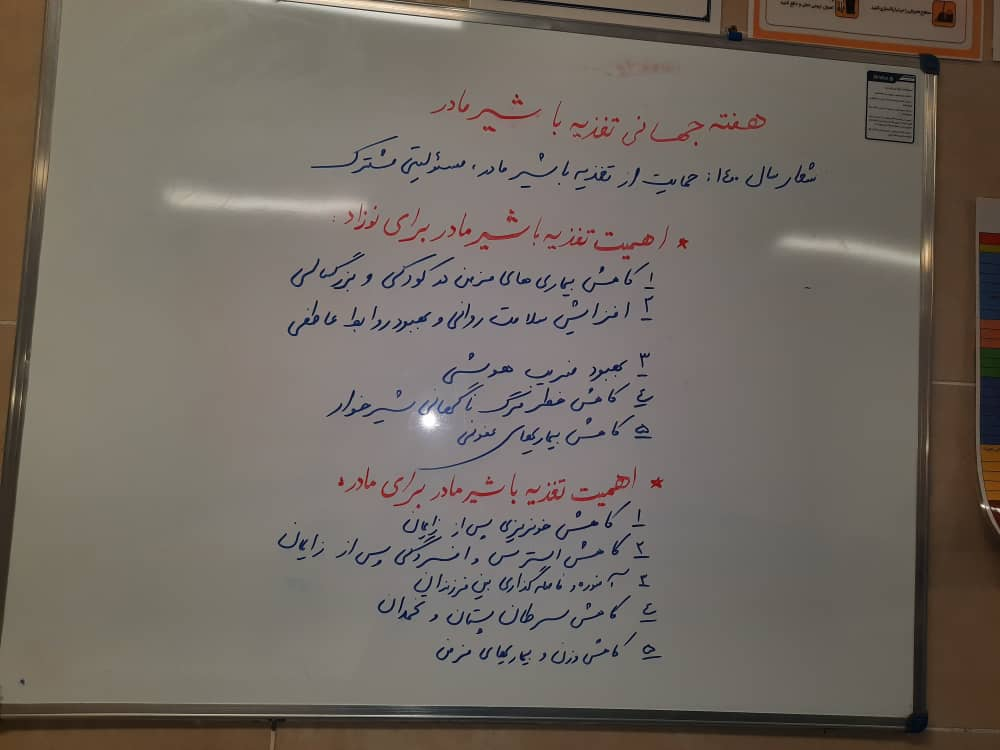 هفته جهانی تغذیه با شیر مادر
شعار سال ۱۴۰۰: حمایت از تغذیه با شیر مادر، مسئولیتی مشترک
* اهمیت تغذیه با شیر مادر برای نوزاد:
۱ کاهش بیماری های مزمن در کودکی و بزرگسالی
۲ افزایش سلامت روانی و بهبود روابط عاطفی
۳ بهبود ضریب هوشی
۴ کاهش خطر مرگ ناگهانی شیرخوار
۵ کاهش بیماریهای عفونی
* اهمیت تغذیه با شیر مادر برای مادر:
۱ کاهش خونریزی پس از زایمان
۲ کاهش استرس و افسردگی پس از زایمان
۳ فاصله گذاری بین فرزندان
۴ کاهش سرطان پستان و تخمدان
۵ کاهش وزن و بیماریهای مزمن